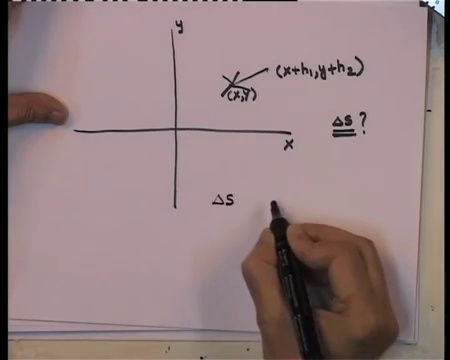 y
(x+h₁, y+h₂)
(x,y)
Δs ?
x
Δs